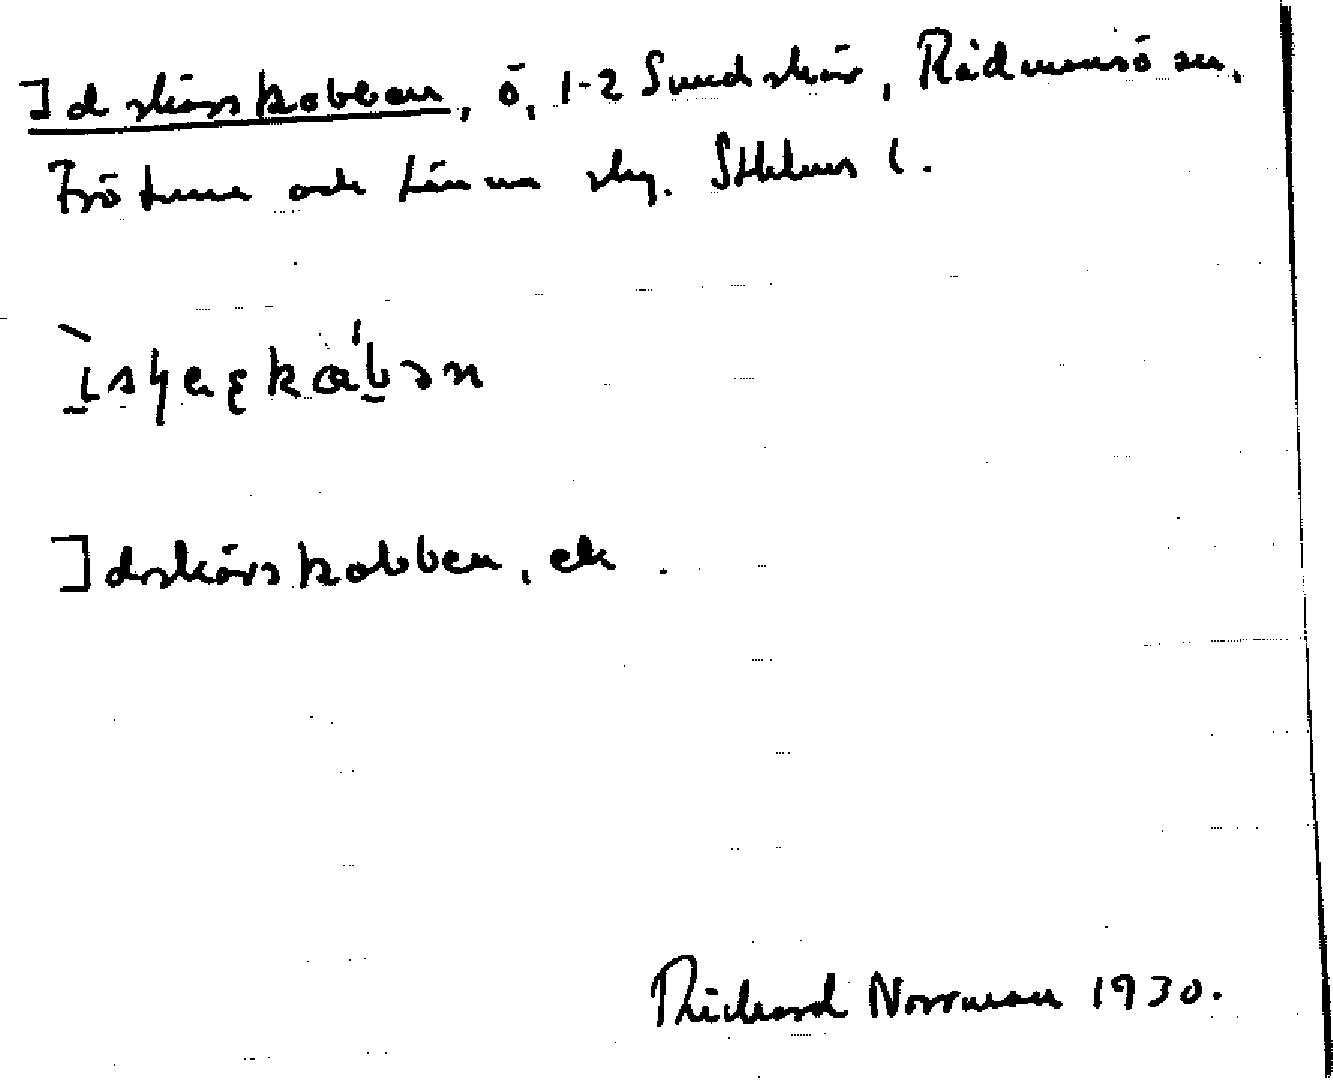 Idskärskobben, ö, 1-2 Sundskär, Rådmansö sn.
Frötuna och Länna skg. Sthlms l.
Idskärskobben, ek.
Richard Norrman 1930.